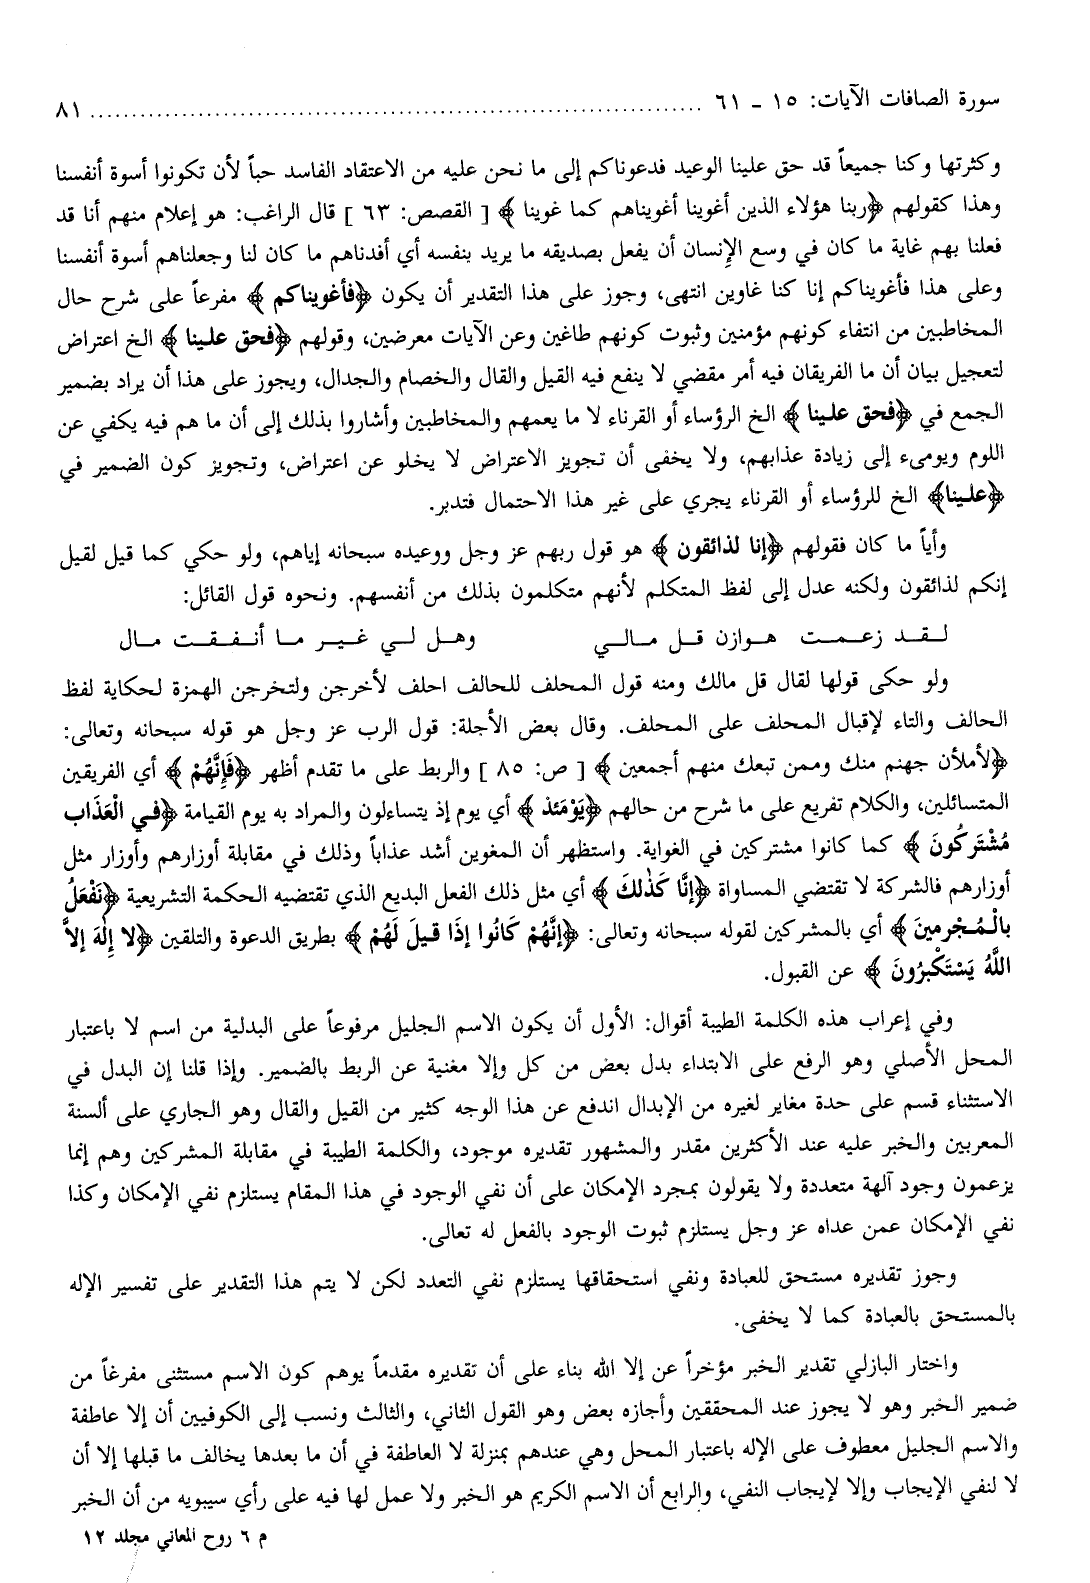 سورة الصافات الآيات: ١٥ ـ ٦١ ........................................ ٨١
وكثرتها وكنا جميعاً قد حق علينا الوعيد فدعوناكم إلى ما نحن عليه من الاعتقاد الفاسد حباً لأن تكونوا أسوة أنفسنا
وهذا كقولهم ﴿ربنا هؤلاء الذين أغوينا أغويناهم كما غوينا﴾ [ القصص: ٦٣ ] قال الراغب: هو إعلام منهم أنا قد
فعلنا بهم غاية ما كان في وسع الإنسان أن يفعل بصديقه ما يريد بنفسه أي أفدناهم ما كان لنا وجعلناهم أسوة أنفسنا
وعلى هذا فأغويناكم إنا كنا غاوين انتهى، وجوز على هذا التقدير أن يكون ﴿فأغويناكم﴾ مفرعاً على شرح حال
المخاطبين من انتفاء كونهم مؤمنين وثبوت كونهم طاغين وعن الآيات معرضين، وقولهم ﴿فحق علينا﴾ الخ اعتراض
لتعجيل بيان أن ما الفريقان فيه أمر مقضي لا ينفع فيه القيل والقال والخصام والجدال، ويجوز على هذا أن يراد بضمير
الجمع في ﴿فحق علينا﴾ الخ الرؤساء أو القرناء لا ما يعمهم والمخاطبين وأشاروا بذلك إلى أن ما هم فيه يكفي عن
اللوم ويومىء إلى زيادة عذابهم، ولا يخفى أن تجويز الاعتراض لا يخلو عن اعتراض، وتجويز كون الضمير في
﴿علينا﴾ الخ للرؤساء أو القرناء يجري على غير هذا الاحتمال فتدبر.
وأياً ما كان فقولهم ﴿إنا لذائقون﴾ هو قول ربهم عز وجل ووعيده سبحانه إياهم، ولو حكي كما قيل لقيل
إنكم لذائقون ولكنه عدل إلى لفظ المتكلم لأنهم متكلمون بذلك من أنفسهم. ونحوه قول القائل:
لقد زعمت هوازن قل مالي وهل لي غير ما أنفقت مال
ولو حكى قولها لقال قل مالك ومنه قول المحلف للحالف احلف لأخرجن ولتخرجن الهمزة لحكاية لفظ
الحالف والتاء لإقبال المحلف على المحلف. وقال بعض الأجلة: قول الرب عز وجل هو قوله سبحانه وتعالى:
﴿لأملأن جهنم منك وممن تبعك منهم أجمعين﴾ [ ص: ٨٥ ] والربط على ما تقدم أظهر ﴿فَإِنَّهُمْ﴾ أي الفريقين
المتسائلين، والكلام تفريع على ما شرح من حالهم ﴿يَوْمَئذ﴾ أي يوم إذ يتساءلون والمراد به يوم القيامة ﴿في الْعَذَاب
مُشْتَركُونَ﴾ كما كانوا مشتركين في الغواية. واستظهر أن المغوين أشد عذاباً وذلك في مقابلة أوزارهم وأوزار مثل
أوزارهم فالشركة لا تقتضي المساواة ﴿إنَّا كَذٰلكَ﴾ أي مثل ذلك الفعل البديع الذي تقتضيه الحكمة التشريعية ﴿نَفْعَلُ
بالْمُجْرمينَ﴾ أي بالمشركين لقوله سبحانه وتعالى: ﴿إنَّهُمْ كَانُوا إذَا قيلَ لَهُمْ﴾ بطريق الدعوة والتلقين ﴿لا إلٰهَ إلاَّ
اللَّهُ يَسْتَكْبرُونَ﴾ عن القبول.
وفي إعراب هذه الكلمة الطيبة أقوال: الأول أن يكون الاسم الجليل مرفوعاً على البدلية من اسم لا باعتبار
المحل الأصلي وهو الرفع على الابتداء بدل بعض من كل وإلا مغنية عن الربط بالضمير. وإذا قلنا إن البدل في
الاستثناء قسم على حدة مغاير لغيره من الإبدال اندفع عن هذا الوجه كثير من القيل والقال وهو الجاري على ألسنة
المعربين والخبر عليه عند الأكثرين مقدر والمشهور تقديره موجود، والكلمة الطيبة في مقابلة المشركين وهم إنما
يزعمون وجود آلهة متعددة ولا يقولون بمجرد الإمكان على أن نفي الوجود في هذا المقام يستلزم نفي الإمكان وكذا
نفي الإمكان عمن عداه عز وجل يستلزم ثبوت الوجود بالفعل له تعالى.
وجوز تقديره مستحق للعبادة ونفي استحقاقها يستلزم نفي التعدد لكن لا يتم هذا التقدير على تفسير الإله
بالمستحق بالعبادة كما لا يخفى.
واختار البازلي تقدير الخبر مؤخراً عن إلا الله بناء على أن تقديره مقدماً يوهم كون الاسم مستثنى مفرغاً من
ضمير الخبر وهو لا يجوز عند المحققين وأجازه بعض وهو القول الثاني، والثالث ونسب إلى الكوفيين أن إلا عاطفة
والاسم الجليل معطوف على الإله باعتبار المحل وهي عندهم بمنزلة لا العاطفة في أن ما بعدها يخالف ما قبلها إلا أن
لا لنفي الإيجاب وإلا لإيجاب النفي، والرابع أن الاسم الكريم هو الخبر ولا عمل لها فيه على رأي سيبويه من أن الخبر
م ٦ روح المعاني مجلد ١٢